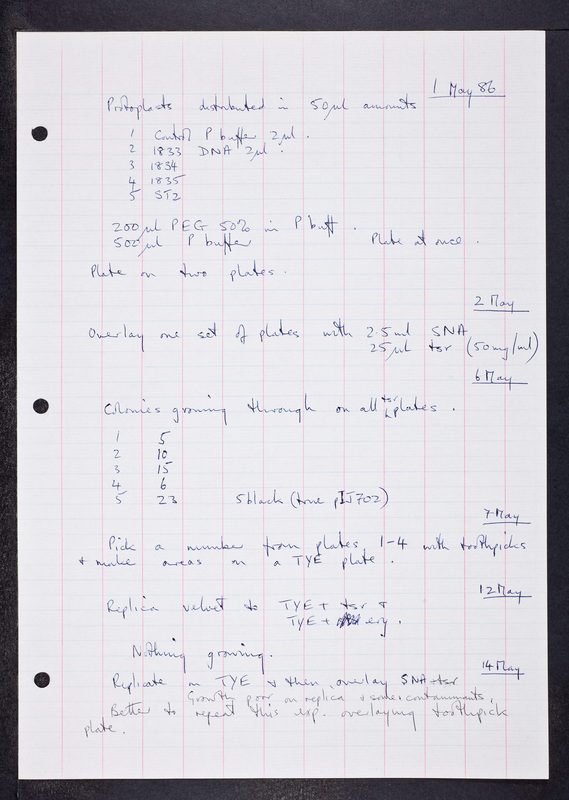 1 May 86
Protoplasts distributed in 50µl amounts
1 Control P buffer 2µl.
2 1833 DNA 2µl.
3 1834
4 1835
5 ST2
200µl PEG 50% in P buff.
500µl P buffer Plate at once.
Plate on two plates.
2 May
Overlay one set of plates with 2.5ml SNA
25µl tsr (50mg/ml)
6 May
Colonies growing through on all tsr plates.
1 5
2 10
3 15
4 6
5 23 5 black (true pIJ702)
7 May
Pick a number from plates 1-4 with toothpicks
+ make areas on a TYE plate.
12 May
Replica velvet to TYE + tsr +
TYE + ery.
Nothing growing.
14 May
Replicate on TYE + then overlay SNA + tsr
Growth poor on replica + some contaminants.
Better to repeat this exp. overlaying toothpick
plate.